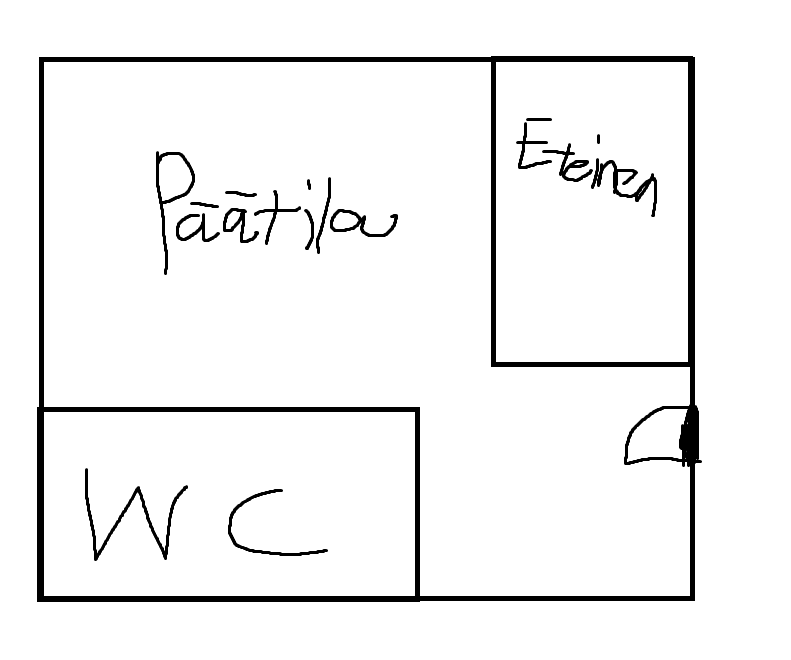 Päätila
Eteinen
WC